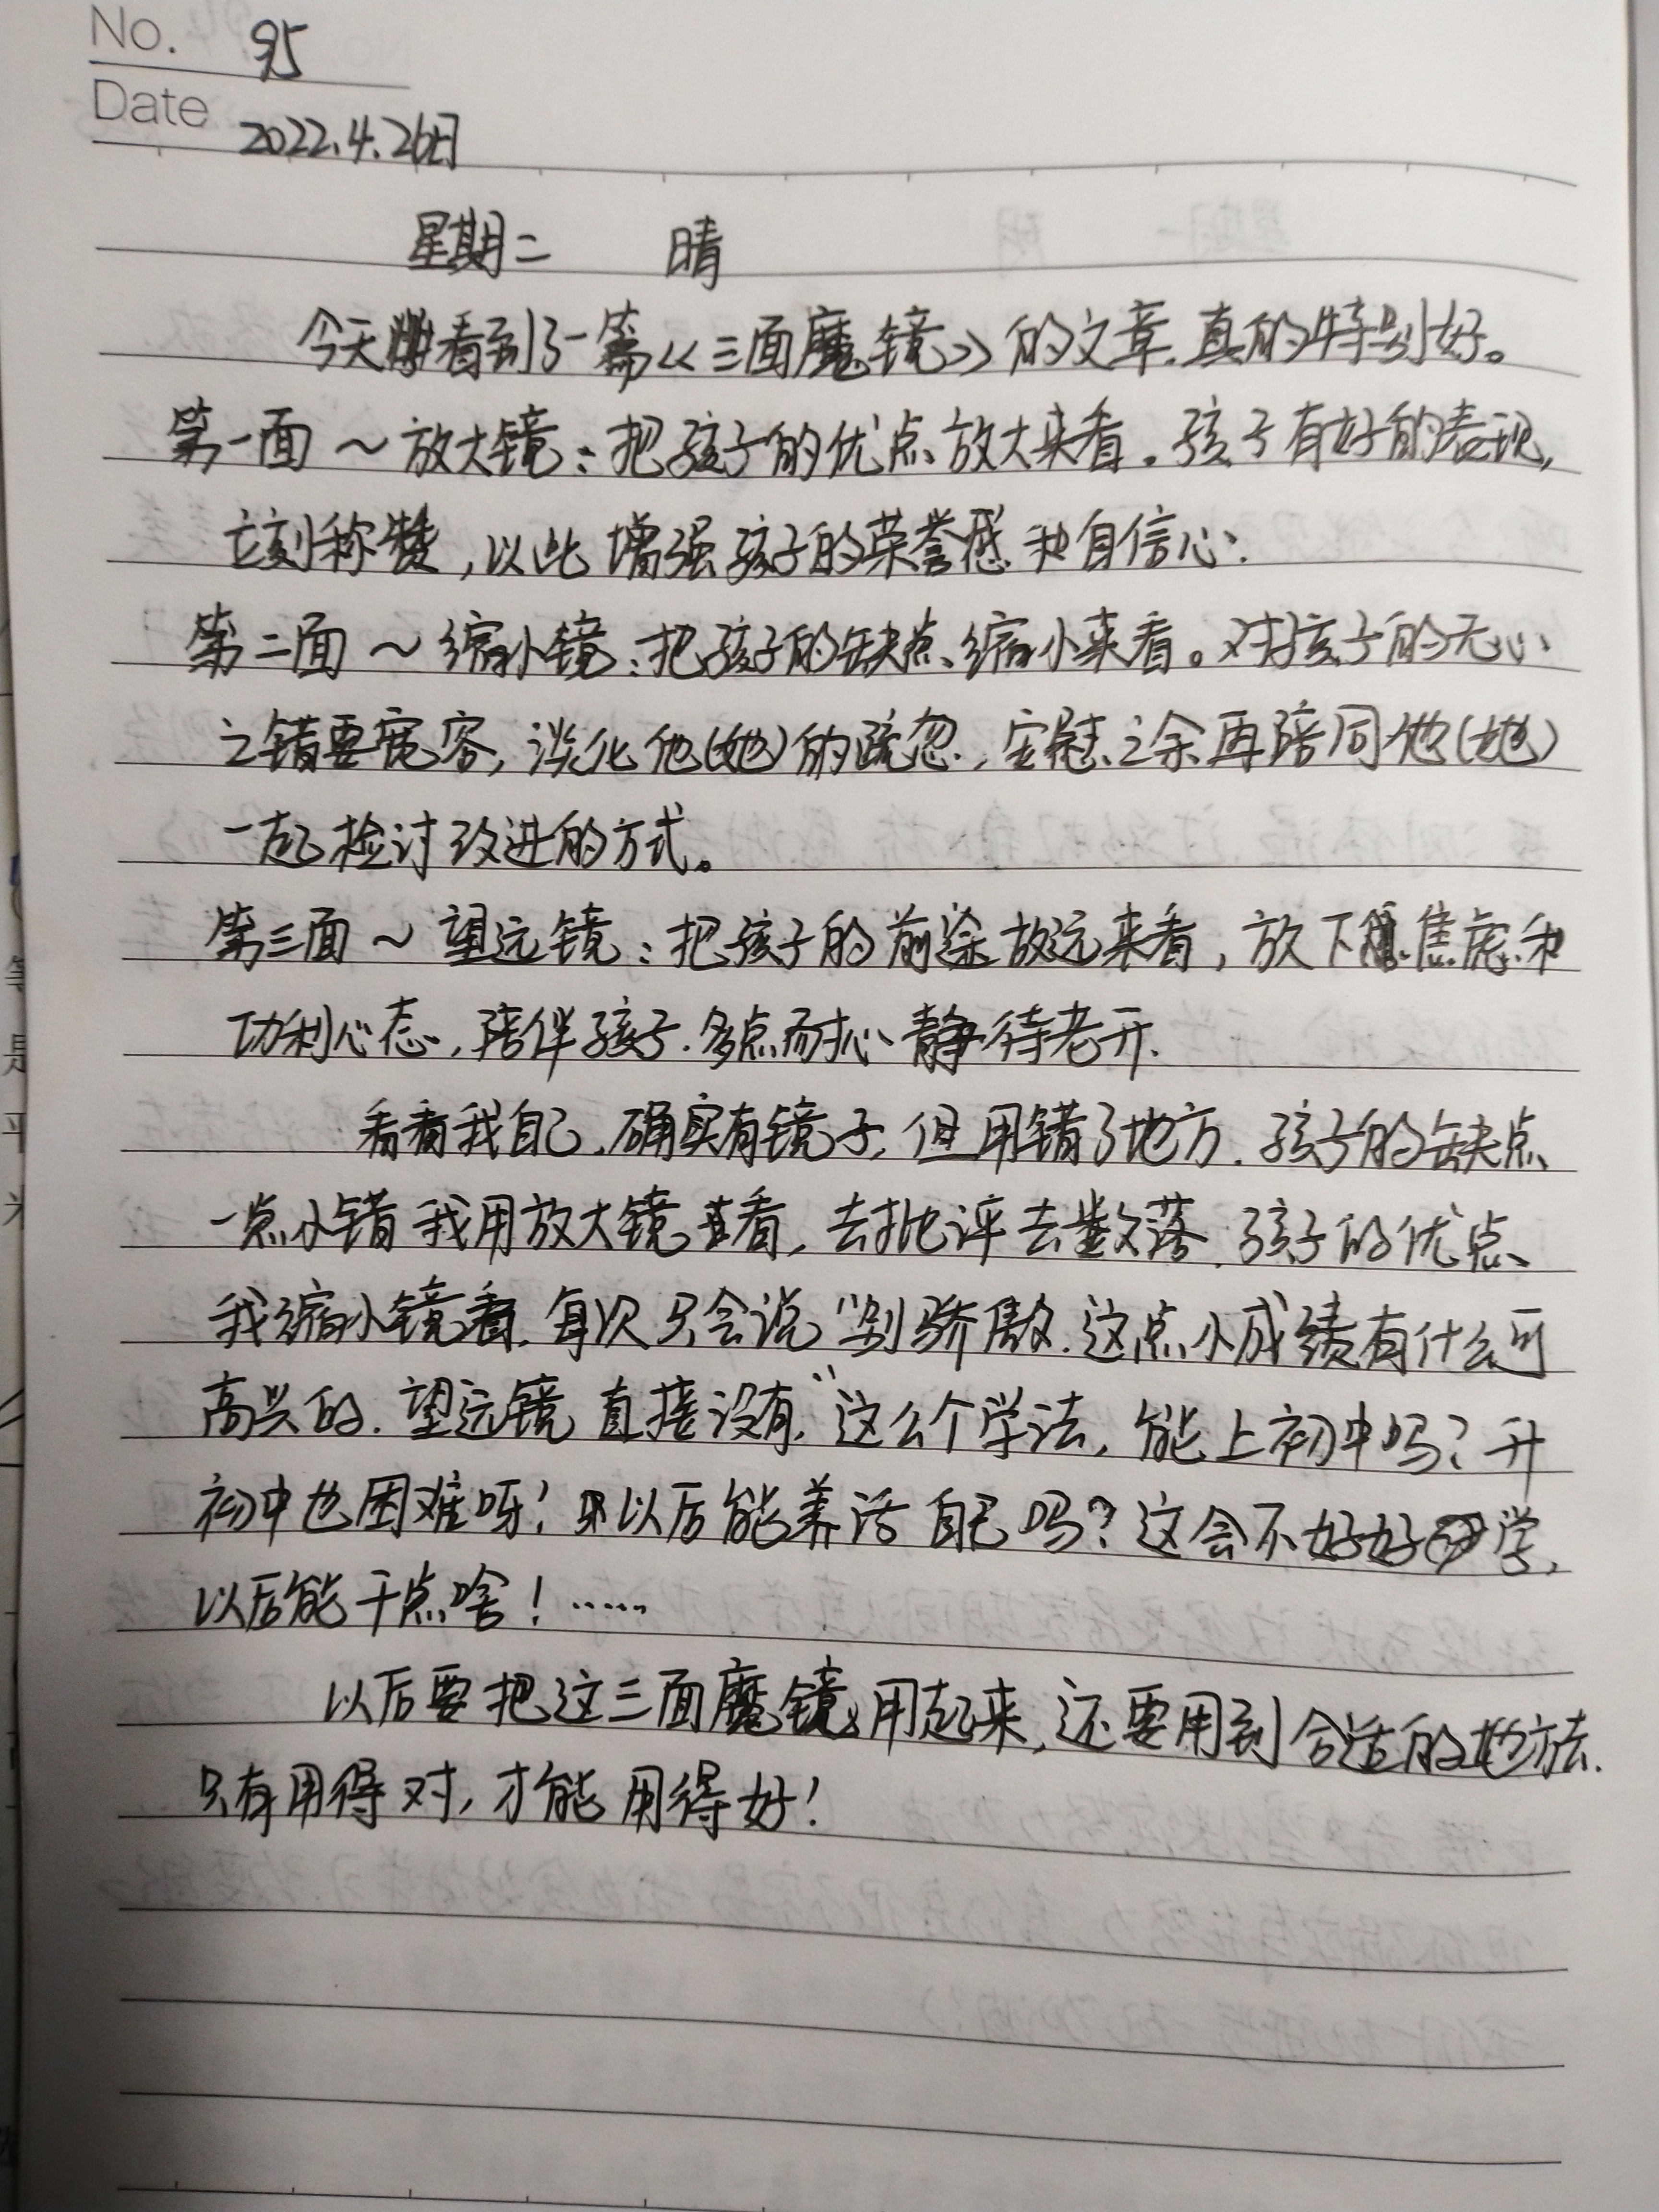 No. 95
Date 2022.4.26日
星期二 晴
今天看到了一篇《三面魔镜》的文章.真的特别好。
第一面～放大镜:把孩子的优点放大来看。孩子有好的表现,
立刻称赞,以此增强孩子的荣誉感和自信心.
第二面～缩小镜:把孩子的缺点缩小来看。对孩子的无心
之错要宽容,淡化他(她)的疏忽,安慰之余再陪同他(她)
一起检讨改进的方式。
第三面～望远镜:把孩子的前途放远来看,放下焦虑和
功利心态,陪伴孩子.多点耐心静待老开.
看看我自己.确实有镜子,但用错了地方.孩子的缺点
一点小错我用放大镜查看,去批评去数落.孩子的优点
我缩小镜看.每次只会说“别骄傲.这点小成绩有什么可
高兴的.望远镜直接没有.“这么个学法,能上初中吗?升
初中也困难呀!以后能养活自己吗?这会不好好学,
以后能干点啥!……
以后要把这三面魔镜用起来,还要用到合适的地方去.
只有用得对,才能用得好!